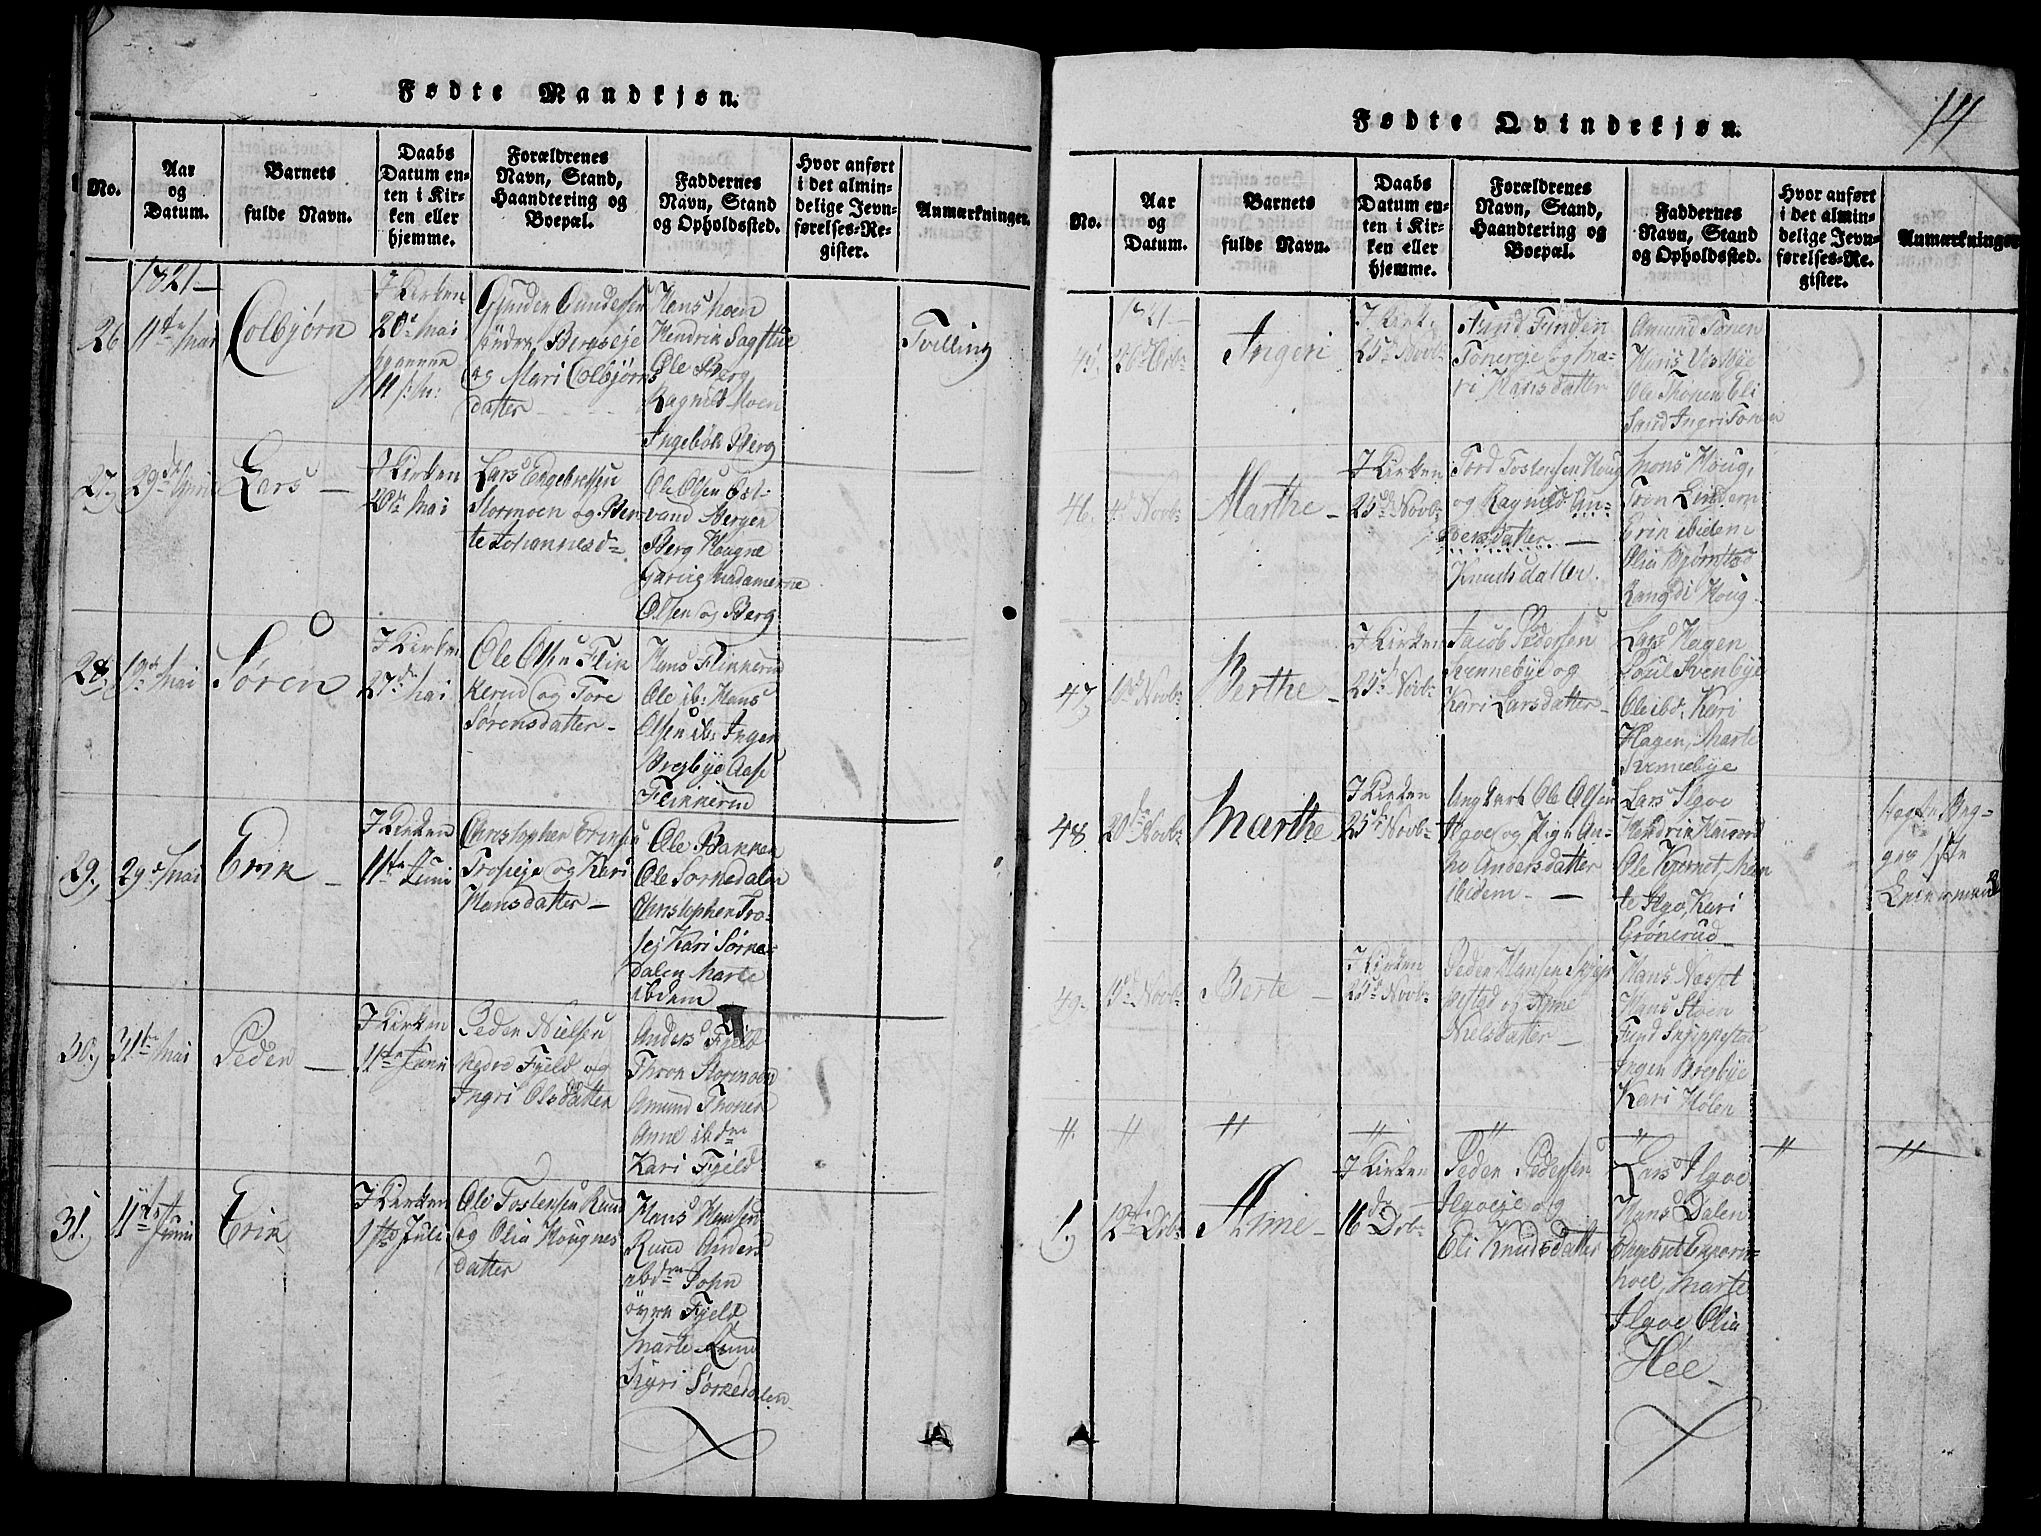 Fødte Mandkjøn.
No.
Aar
og
Datum.
Barnets
fulde Navn.
Daabs
Datum en-
ten i Kir-
ken eller
hjemme.
Forældrenes
Navn, Stand,
Haandtering og
Boepæl.
Faddernes
Navn, Stand
og Opholdssted.
Hvor anført
i det almin-
delige Jevn-
førelses-Re-
gister.
Anmærkninger.
1821
26
11te Mai
Colbjørn
I Kirken
20de Mai
Gunder Gundersen
Søndre Bergseje
og Mari Colbjørns
datter
Hans Moen
Hendrik Sagstue
Ole Berg
Ragnild Moen
Ingebör Berg
Tvilling
27.
29de
Lars
I Kirken
20de Mai
Lars Engebretsen
Stormoen og Ber-
te Johannesd
Ole Olsen Øst-
vand Bergen
Berg Hougne
Garvig Madamerne
Olsen og Berg
28.
19de Mai
Søren
I Kirken
27de Mai
Ole Olsen Flik
kerud og Tore
Sørensdatter
Hans Flikkerud
Ole ib: Hans
Olsen ib: Inger
Brejbye Aase
Flikkerud
29.
29de Mai
Erik
I Kirken
11te Juni
Christopher Ericsen
Troseje og Kari
Hansdatter
Ole Bakken
Ole Sorkedalen
Christopher Tro-
sej Kari Sørke-
dalen Marte
ibdem
30.
31te Mai
Peder
I Kirken
11te Juni
Peder Nielsen
Nedre Fjeld og
Ingri Olsdatter
Anders Fjeld
Thron Stormoen
Amund Thonen
Anne ibdm
Kari Fjeld
31.
11te Juni
Erik
I Kirken
1ste Juli
Ole Tostensen Rund
og Olia Hougnes
datter
Hans Hansen
Rund Anders
ibdm John
øvre Fjeld
Marte Rund
Sigri Sørkedalen
14
Fødte Qvindekjøn.
No.
Aar
og
Datum.
Barnets
fulde Navn.
Daabs
Datum en-
ten i Kir-
ken eller
hjemme.
Forældrenes
Navn, Stand,
Haandtering og
Boepæl.
Faddernes
Navn, Stand
og Opholdssted.
Hvor anført
i det almin-
delige Jevn-
førelses-Re-
gister.
Anmærkninger
1821
45.
26de Octb
Ingeri
I Kirk.
25de Novb
Toneeje og Ma-
ri Hansdatter
Amund Tonen
Ole Thonen Eli
Sand Ingri Tonen
46.
4de Novb
Marthe
I Kirken
25de Novb
Tord Tostensen Houg
og Ragnild An-
dersdatter
Knudsdatter.
Mons Houg,
Tron Lindem
Erik ibidem
Olia Bjørnstad
Rangdi Houg
47
10de Novb
Berthe
I Kirken
25de Novb
Jacob Pedersen
Svennebye og
Kari Larsdatter
Lars Hagen
Poul Svenbye
Ole ibd. Kari
Hagen, Marte
Svennebye
48
20de Novb
Marthe
I Kirken
25de Novb
Ungkarl Ole Olsen
Ilgoe og Pige An-
ne Andersdatter
ibidem
Lars Ilgoe
Hendrik
Ole Kjernet, Mar
te Ilgoe, Kari
Grønerud
Begge
1ste
Leiermaal
49.
15de Novb
Berte
I Kirken
25de Novb
Peder Hansen Skjep-
pestad og Anne
Nielsdatter
Hans Næsset
Hans Moen
Inger Brejbye
Kari Hølen
"
"
"
"
"
"
"
"
1.
12te Decb
Anne
I Kirken
16de Decb
Peder Pedersen
Ilgoeje og
Eli Knudsdatter
Lars Ilgoe
Hans Dalen
Engebret
hoel, Marte
Ilgoe Olia
Hee